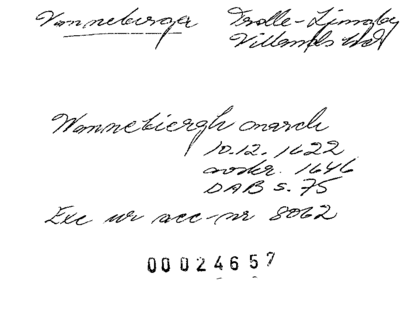 Vanneberga Trolle-Ljungby
Villands hd
Wannebiergh march
10.12. 1622
avskr. 1646
DAB s. 75
Exc ur acc-nr 8062
00024657